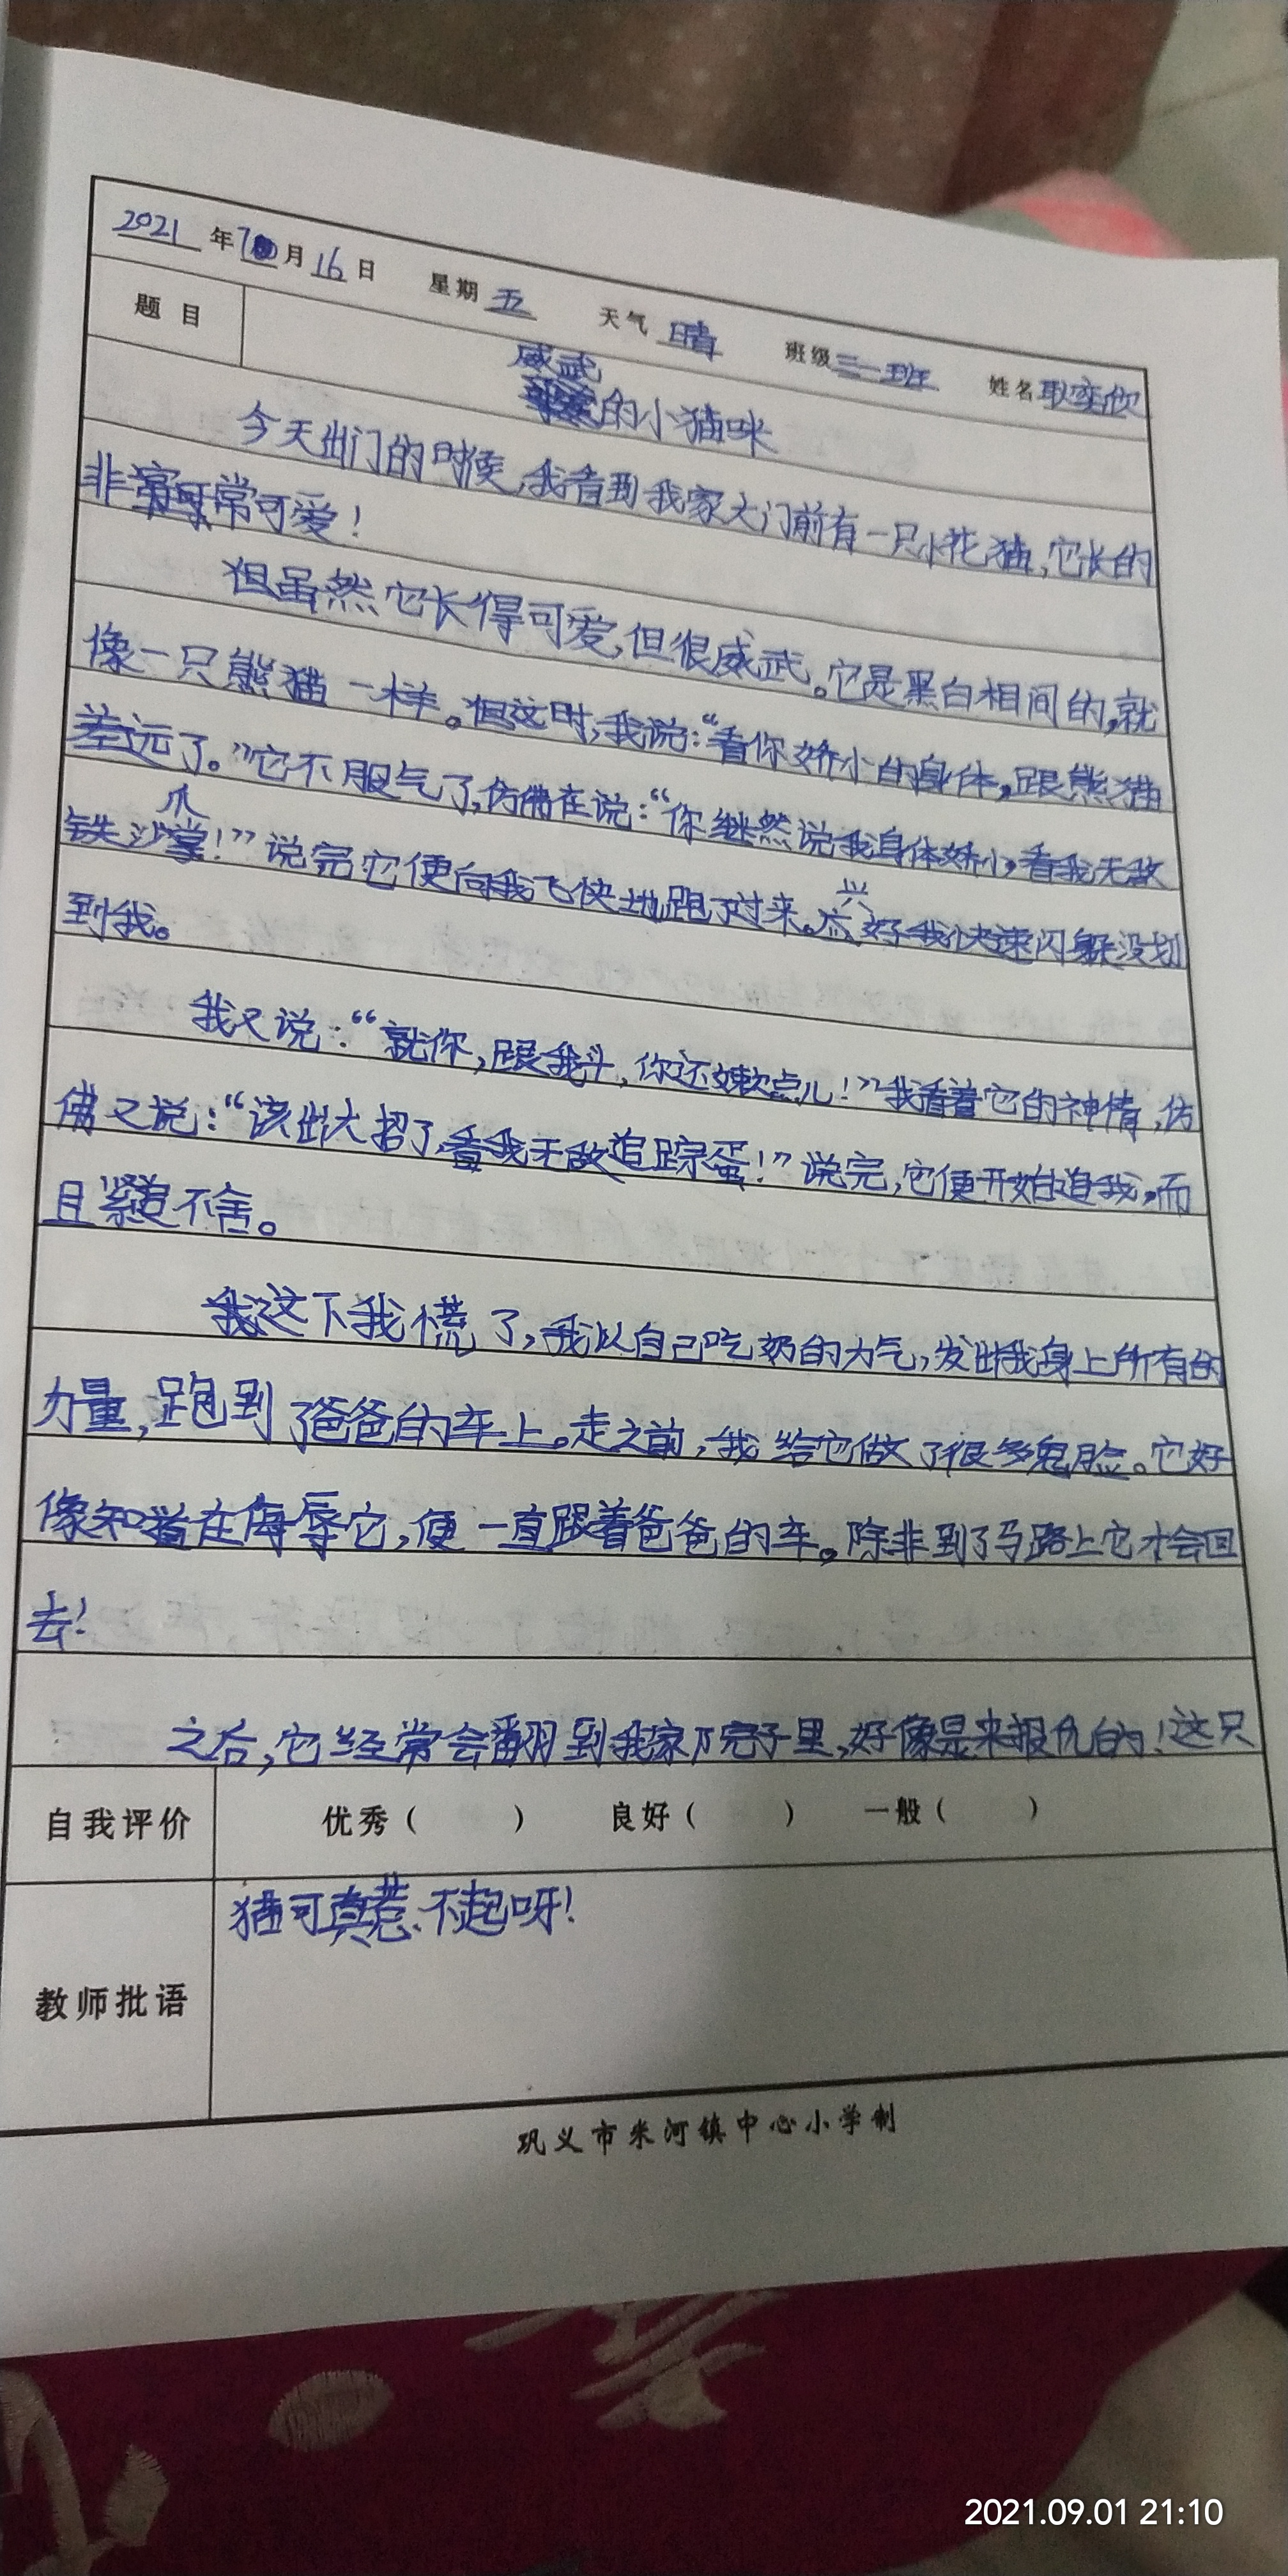 2021年7月16日 星期五 天气晴 班级三一班 姓名耿奕欣
题目
威武
的小猫咪
今天出门的时候,我看到我家大门前有一只小花猫,它长的
非常可爱!
但虽然它长得可爱,但很威武。它是黑白相间的,就
像一只熊猫一样。但这时,我说:“看你娇小的身体,跟熊猫
差远了。”它不服气了,仿佛在说:“你继然说我身体娇小,看我无敌
爪
铁沙掌!”说完它便向我飞快地跑了过来。
好我快速闪躲没划
到我。
我又说:“就你,跟我斗,你还嫩点儿!”我看着它的神情,仿
佛又说:“该出大招了,看我无敌追踪蛋!”说完,它便开始追我,而
且紧追不舍。
我这下我慌了,我以自己吃奶的力气,发出我身上所有的
力量,跑到了爸爸的车上。走之前,我给它做了很多鬼脸。它好
像知道在侮辱它,便一直跟着爸爸的车。除非到了马路上它才会回
去!
之后,它经常会翻到我家院子里,好像是来报仇的!这只
自我评价 优秀( ) 良好( ) 一般( )
猫可真惹不起呀!
教师批语
巩义市米河镇中心小学制
2021.09.01 21:10